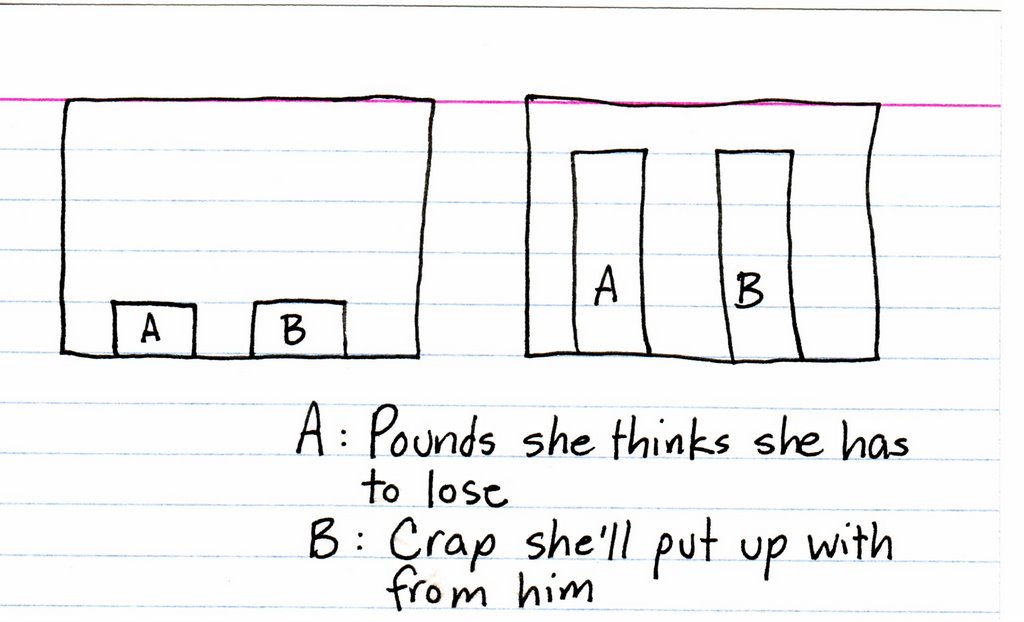 A B A B
A: Pounds she thinks she has
to lose
B: Crap she'll put up with
from him